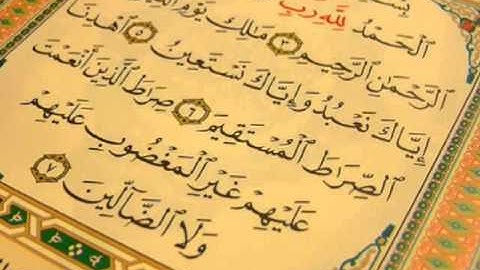 ٱلْحَمْدُ لِلَّهِ رَبِّ
ٱلرَّحْمَٰنِ ٱلرَّحِيمِ ٣ مَٰلِكِ يَوْمِ ٱلدِّينِ
إِيَّاكَ نَعْبُدُ وَإِيَّاكَ نَسْتَعِينُ ٥ ٱهْدِنَا
ٱلصِّرَٰطَ ٱلْمُسْتَقِيمَ ٦ صِرَٰطَ ٱلَّذِينَ أَنْعَمْتَ
عَلَيْهِمْ غَيْرِ ٱلْمَغْضُوبِ عَلَيْهِمْ
وَلَا ٱلضَّآلِّينَ ٧